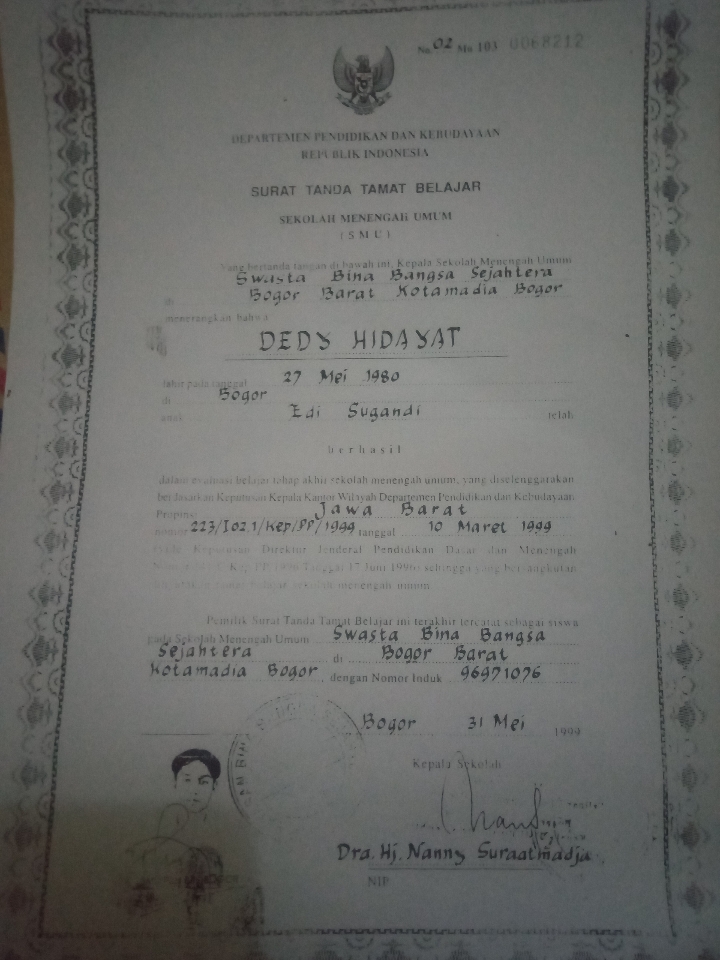 No. 02 Mu 103 0068212
DEPARTEMEN PENDIDIKAN DAN KEBUDAYAAN
REPUBLIK INDONESIA
SURAT TANDA TAMAT BELAJAR
SEKOLAH MENENGAH UMUM
( S M U )
Yang bertanda tangan di bawah ini, Kepala Sekolah Menengah Umum
Swasta Bina Bangsa Sejahtera
di Bogor Barat Kotamadia Bogor
menerangkan bahwa
DEDY HIDAYAT
lahir pada tanggal 27 Mei 1980
di Bogor
anak Edi Sugandi telah
berhasil
dalam evaluasi belajar tahap akhir sekolah menengah umum, yang diselenggarakan
berdasarkan Keputusan Kepala Kantor Wilayah Departemen Pendidikan dan Kebudayaan
Propinsi Jawa Barat
nomor 223/I02.1/Kep/PP/1999 tanggal 10 Maret 1999
Keputusan Direktur Jenderal Pendidikan Dasar dan Menengah
Tanggal 17 Juni 1996) sehingga yang bersangkutan
sekolah menengah umum
Pemilik Surat Tanda Tamat Belajar ini terakhir tercatat sebagai siswa
pada Sekolah Menengah Umum Swasta Bina Bangsa
Sejahtera di Bogor Barat
Kotamadia Bogor, dengan Nomor Induk 96971076
Bogor 31 Mei 1999
Kepala Sekolah
Dra. Hj. Nanny Suraatmadja
NIP